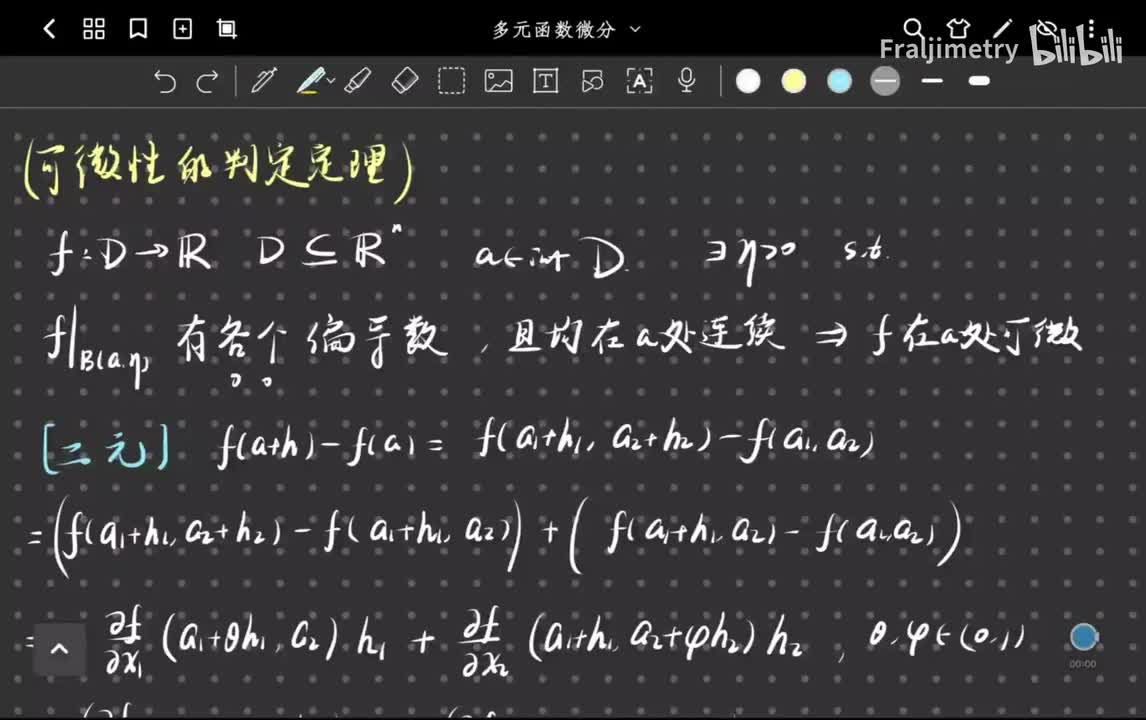 多元函数微分
Fraljimetry bilibili
(可微性的判定定理)
f: D→ℝ D⊆ℝⁿ a∈int D. ∃η>0 s.t.
f|B(a,η) 有各个偏导数, 且均在a处连续 ⇒ f在a处可微
[二元] f(a+h)-f(a)= f(a₁+h₁, a₂+h₂)-f(a₁,a₂)
=(f(a₁+h₁,a₂+h₂)-f(a₁+h₁,a₂))+(f(a₁+h₁,a₂)-f(a₁,a₂))
= ∂f/∂x₁ (a₁+θh₁, a₂)h₁ + ∂f/∂x₂ (a₁+h₁, a₂+φh₂)h₂, θ,φ∈(0,1)
00:00